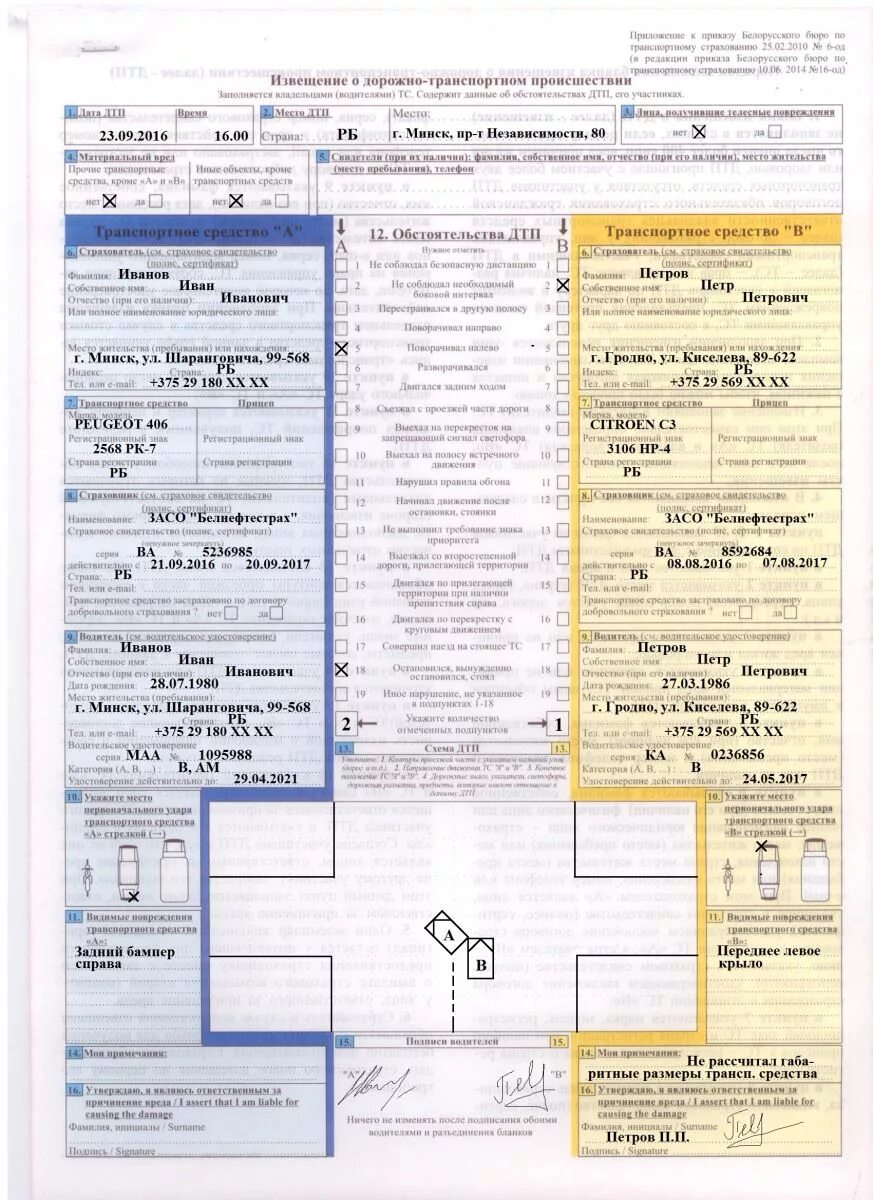 Приложение к приказу Белорусского бюро по
транспортному страхованию 25.02.2010 № 6-од
(в редакции приказа Белорусского бюро по
транспортному страхованию 10.06. 2014 №16-од)
Извещение о дорожно-транспортном происшествии
Заполняется владельцами (водителями) ТС. Содержит данные об обстоятельствах ДТП, его участниках.
1. Дата ДТП Время
23.09.2016 16.00
2. Место ДТП Место:
Страна: РБ г. Минск, пр-т Независимости, 80
3. Лица, получившие телесные повреждения
нет X да
4. Материальный вред
Прочие транспортные средства, кроме «А» и «В»
нет X да
Иные объекты, кроме транспортных средств
нет X да
5. Свидетели (при их наличии): фамилия, собственное имя, отчество (при его наличии), место жительства
(место пребывания), телефон
Транспортное средство "А"
6. Страхователь (см. страховое свидетельство
(полис, сертификат)
Фамилия: Иванов
Собственное имя: Иван
Отчество (при его наличии): Иванович
Или полное наименование юридического лица:
Место жительства (пребывания) или нахождения:
г. Минск, ул. Шаранговича, 99-568
Индекс: Страна: РБ
Тел. или e-mail: +375 29 180 XX XX
7. Транспортное средство Прицеп
Марка, модель
PEUGEOT 406
Регистрационный знак Регистрационный знак
2568 РК-7
Страна регистрации Страна регистрации
РБ
8. Страховщик (см. страховое свидетельство
(полис, сертификат)
Наименование: ЗАСО "Белнефтестрах"
Страховое свидетельство (полис, сертификат)
(ненужное зачеркнуть)
серия ВА № 5236985
действительно с 21.09.2016 по 20.09.2017
Страна: РБ
Тел. или e-mail:
Транспортное средство застраховано по договору
добровольного страхования ? нет да
9. Водитель (см. водительское удостоверение)
Фамилия: Иванов
Собственное имя: Иван
Отчество (при его наличии): Иванович
Дата рождения: 28.07.1980
Место жительства (пребывания):
г. Минск, ул. Шаранговича, 99-568
Страна: РБ
Тел. или e-mail: +375 29 180 XX XX
Водительское удостоверение
серия МАА № 1095988
Категория (А, В, ...) : В, АМ
Удостоверение действительно до: 29.04.2021
А 12. Обстоятельства ДТП В
Нужное отметить
1 Не соблюдал безопасную дистанцию 1
2 Не соблюдал необходимый боковой интервал 2 X
3 Перестраивался в другую полосу 3
4 Поворачивал направо 4
X 5 Поворачивал налево 5
6 Разворачивался 6
7 Двигался задним ходом 7
8 Съезжал с проезжей части дороги 8
9 Выехал на перекресток на запрещающий сигнал светофора 9
10 Выехал на полосу встречного движения 10
11 Нарушил правила обгона 11
12 Начинал движение после остановки, стоянки 12
13 Не выполнил требование знака приоритета 13
14 Выезжал со второстепенной дороги, прилегающей территории 14
15 Двигался по прилегающей территории при наличии препятствия справа 15
16 Двигался по перекрестку с круговым движением 16
17 Совершил наезд на стоящее ТС 17
X 18 Остановился, вынужденно остановился, стоял 18
19 Иное нарушение, не указанное в подпунктах 1-18 19
2 Укажите количество отмеченных подпунктов 1
Транспортное средство "В"
6. Страхователь (см. страховое свидетельство
(полис, сертификат)
Фамилия: Петров
Собственное имя: Петр
Отчество (при его наличии): Петрович
Или полное наименование юридического лица:
Место жительства (пребывания) или нахождения:
г. Гродно, ул. Киселева, 89-622
Индекс: Страна: РБ
Тел. или e-mail: +375 29 569 XX XX
7. Транспортное средство Прицеп
Марка, модель
CITROEN C3
Регистрационный знак Регистрационный знак
3106 НР-4
Страна регистрации Страна регистрации
РБ
8. Страховщик (см. страховое свидетельство
(полис, сертификат)
Наименование: ЗАСО "Белнефтестрах"
Страховое свидетельство (полис, сертификат)
(ненужное зачеркнуть)
серия ВА № 8592684
действительно с 08.08.2016 по 07.08.2017
Страна: РБ
Тел. или e-mail:
Транспортное средство застраховано по договору
добровольного страхования ? нет да
9. Водитель (см. водительское удостоверение)
Фамилия: Петров
Собственное имя: Петр
Отчество (при его наличии): Петрович
Дата рождения: 27.03.1986
Место жительства (пребывания):
г. Гродно, ул. Киселева, 89-622
Страна: РБ
Тел. или e-mail: +375 29 569 XX XX
Водительское удостоверение
серия КА № 0236856
Категория (А, В, ...) : В
Удостоверение действительно до: 24.05.2017
13. Схема ДТП 13.
Уточните: 1. Контуры проезжей части с указанием названий улиц
(дорог и т.д.). 2. Направление движения ТС "А" и "В". 3. Конечное
положение ТС "А" и "В". 4. Дорожные знаки, указатели, светофоры,
дорожная разметка, предметы, которые имеют отношение к
данному ДТП
10. Укажите место
первоначального удара
транспортного средства
«А» стрелкой (→)
10. Укажите место
первоначального удара
транспортного средства
«В» стрелкой (→)
11. Видимые повреждения
транспортного средства
«А»:
Задний бампер
справа
А
В
11. Видимые повреждения
транспортного средства
«В»:
Переднее левое
крыло
14. Мои примечания:
15. Подписи водителей 15.
"А" "В"
Ничего не изменять после подписания обоими
водителями и разъединения бланков
14. Мои примечания:
Не рассчитал габа-
ритные размеры трансп. средства
16. Утверждаю, я являюсь ответственным за
причинение вреда / I assert that I am liable for
causing the damage
Фамилия, инициалы / Surname
Подпись / Signature
16. Утверждаю, я являюсь ответственным за
причинение вреда / I assert that I am liable for
causing the damage
Фамилия, инициалы / Surname
Петров П.П.
Подпись / Signature